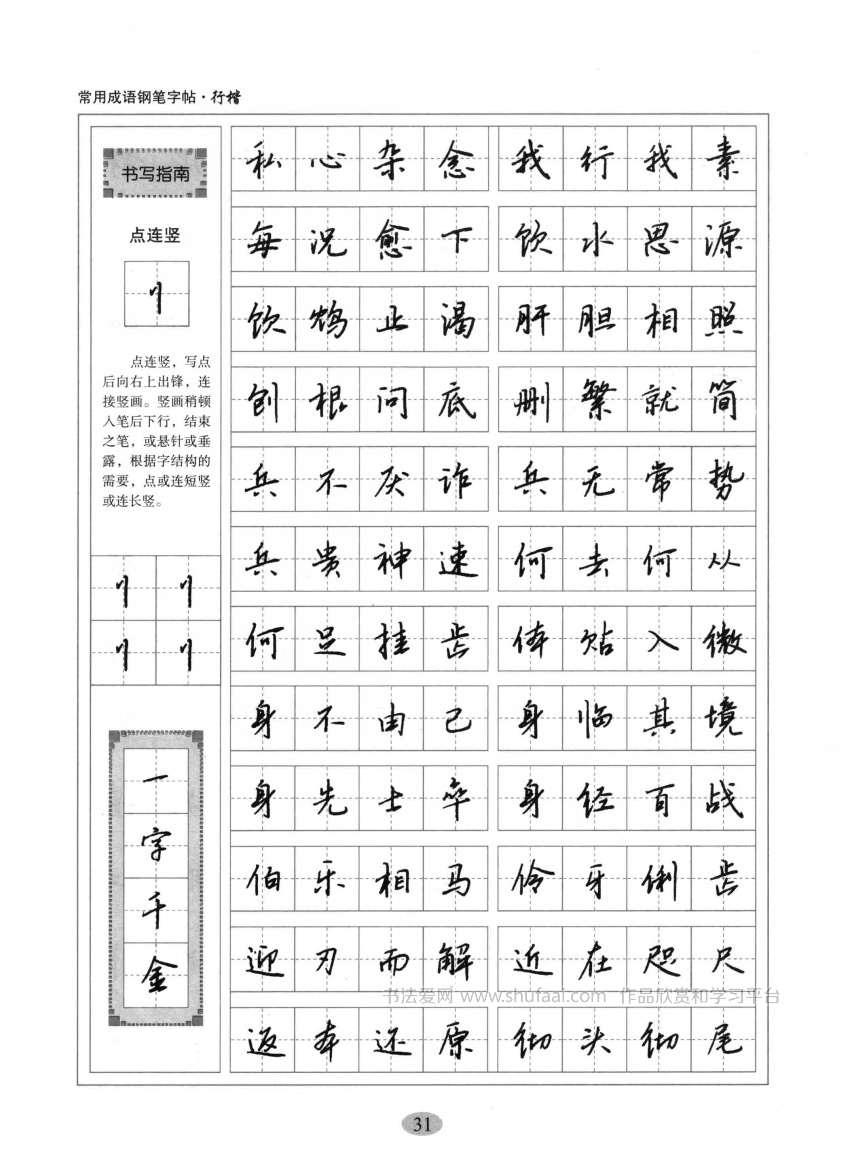 常用成语钢笔字帖·行楷
书写指南
点连竖
点连竖，写点
后向右上出锋，连
接竖画。竖画稍顿
入笔后下行，结束
之笔，或悬针或垂
露，根据字结构的
需要，点或连短竖
或连长竖。
一
字
千
金
私心杂念 我行我素
每况愈下 饮水思源
饮鸩止渴 肝胆相照
刨根问底 删繁就简
兵不厌诈 兵无常势
兵贵神速 何去何从
何足挂齿 体贴入微
身不由己 身临其境
身先士卒 身经百战
伯乐相马 伶牙俐齿
迎刃而解 近在咫尺
返本还原 彻头彻尾
书法爱网 www.shufaai.com 作品欣赏和学习平台
31